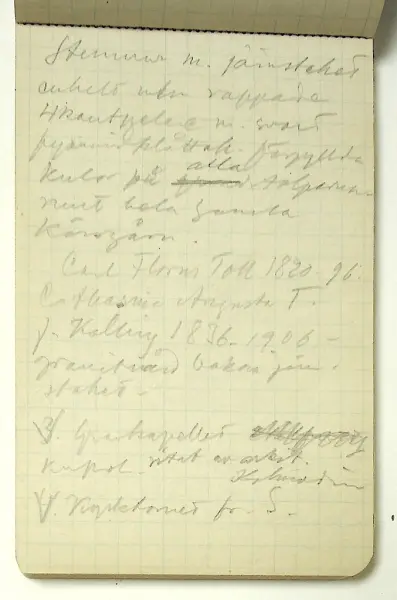 Stenmur m. järnstaket
enkelt men rappade
4kantpelare m. svart
pyramidplåttak. Förgyllda
kulor på alla stolparna
runt hela gamla
kyrogårn.
Carl Florus Toll 1820-96.
Catharina Augusta T.
f. Kalling 1836-1906 -
granitvård bakom järn-
staket -
3). Gravkapellet
kupol. ritat av arkit.
4). Kyrktornet fr. S.